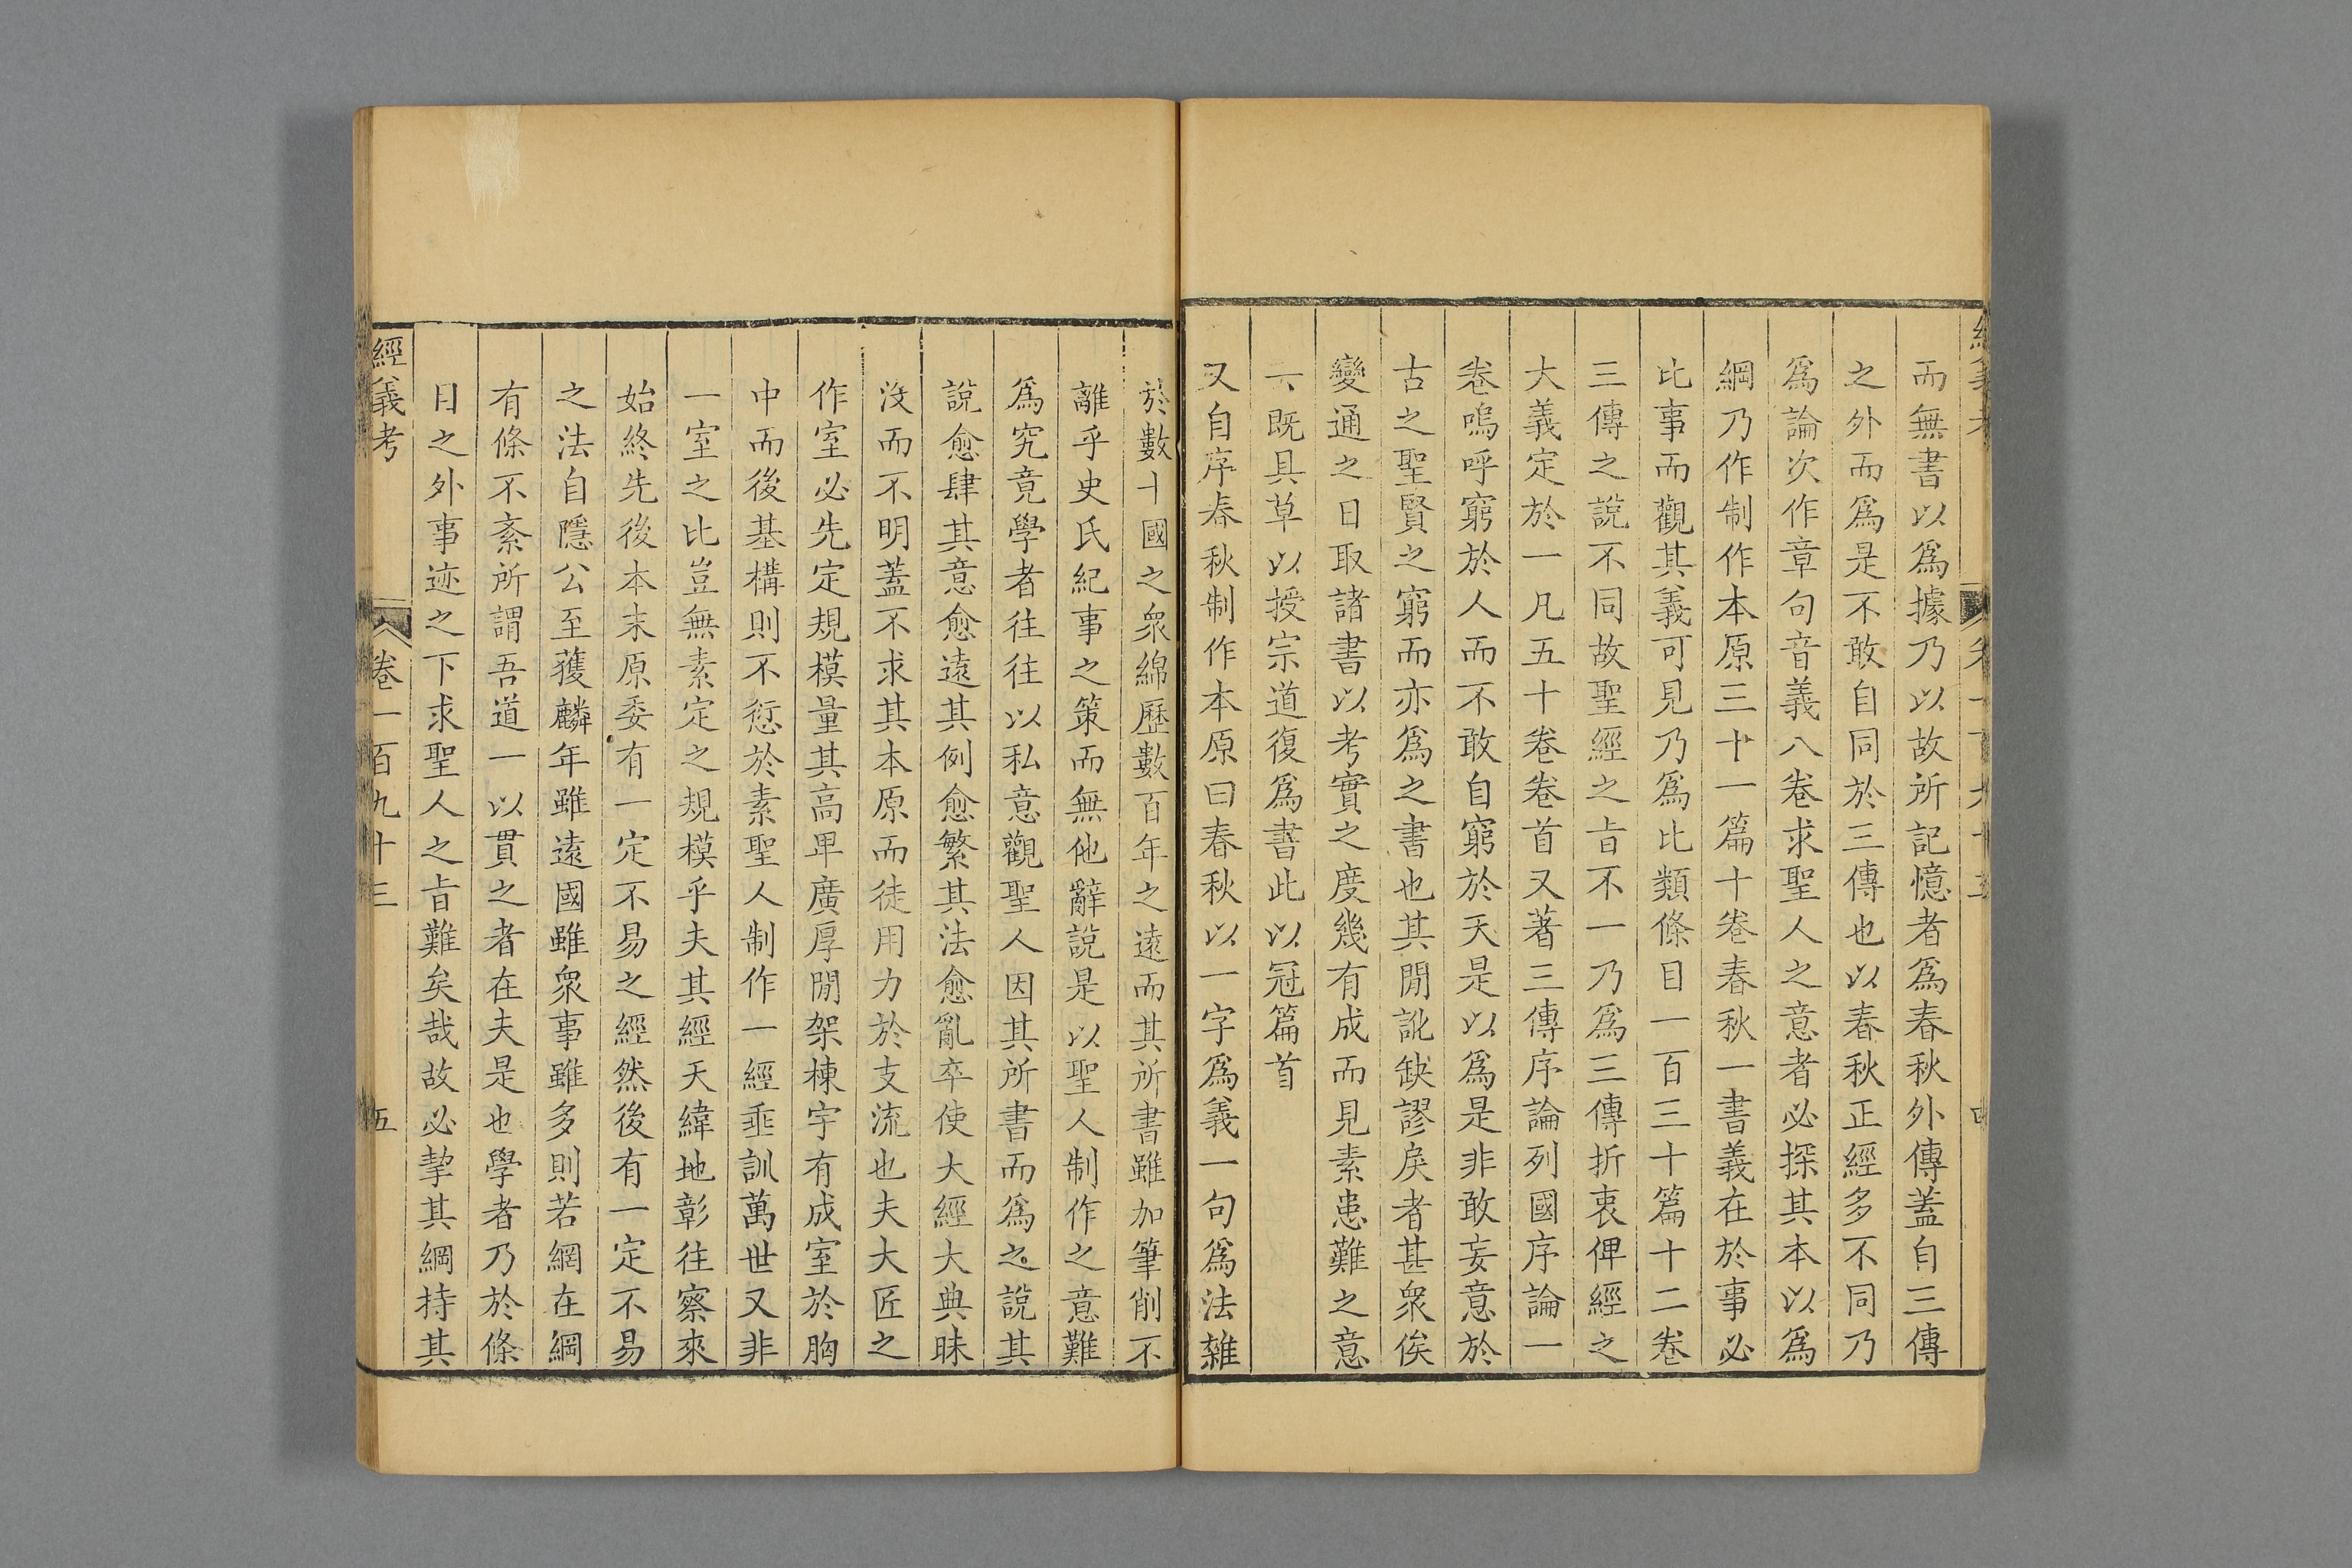 而無書以爲據乃以故所記憶者爲春秋外傳蓋自三傳
之外而爲是不敢自同於三傳也以春秋正經多不同乃
爲論次作章句音義八卷求聖人之意者必探其本以爲
綱乃作制作本原三十一篇十卷春秋一書義在於事必
比事而觀其義可見乃爲比類條目一百三十篇十二卷
三傳之說不同故聖經之旨不一乃爲三傳折衷俾經之
大義定於一凡五十卷卷首又著三傳序論列國序論一
卷嗚呼窮於人而不敢自窮於天是以爲是非敢妄意於
古之聖賢之窮而亦爲之書也其閒訛缺謬戾者甚衆俟
變通之日取諸書以考實之度幾有成而見素患難之意
既具草以授宗道復爲書此以冠篇首
又自序春秋制作本原曰春秋以一字爲義一句爲法雜
於數十國之衆綿歷數百年之遠而其所書雖加筆削不
離乎史氏紀事之策而無他辭說是以聖人制作之意難
爲究竟學者往往以私意觀聖人因其所書而爲之說其
說愈肆其意愈遠其例愈繁其法愈亂卒使大經大典昧
沒而不明蓋不求其本原而徒用力於支流也夫大匠之
作室必先定規模量其高卑廣厚閒架棟宇有成室於胸
中而後基構則不愆於素聖人制作一經垂訓萬世又非
一室之比豈無素定之規模乎夫其經天緯地彰往察來
始終先後本末原委有一定不易之經然後有一定不易
之法自隱公至獲麟年雖遠國雖衆事雖多則若網在綱
有條不紊所謂吾道一以貫之者在夫是也學者乃於條
目之外事迹之下求聖人之旨難矣哉故必挈其綱持其
經義考 卷一百九十三 五